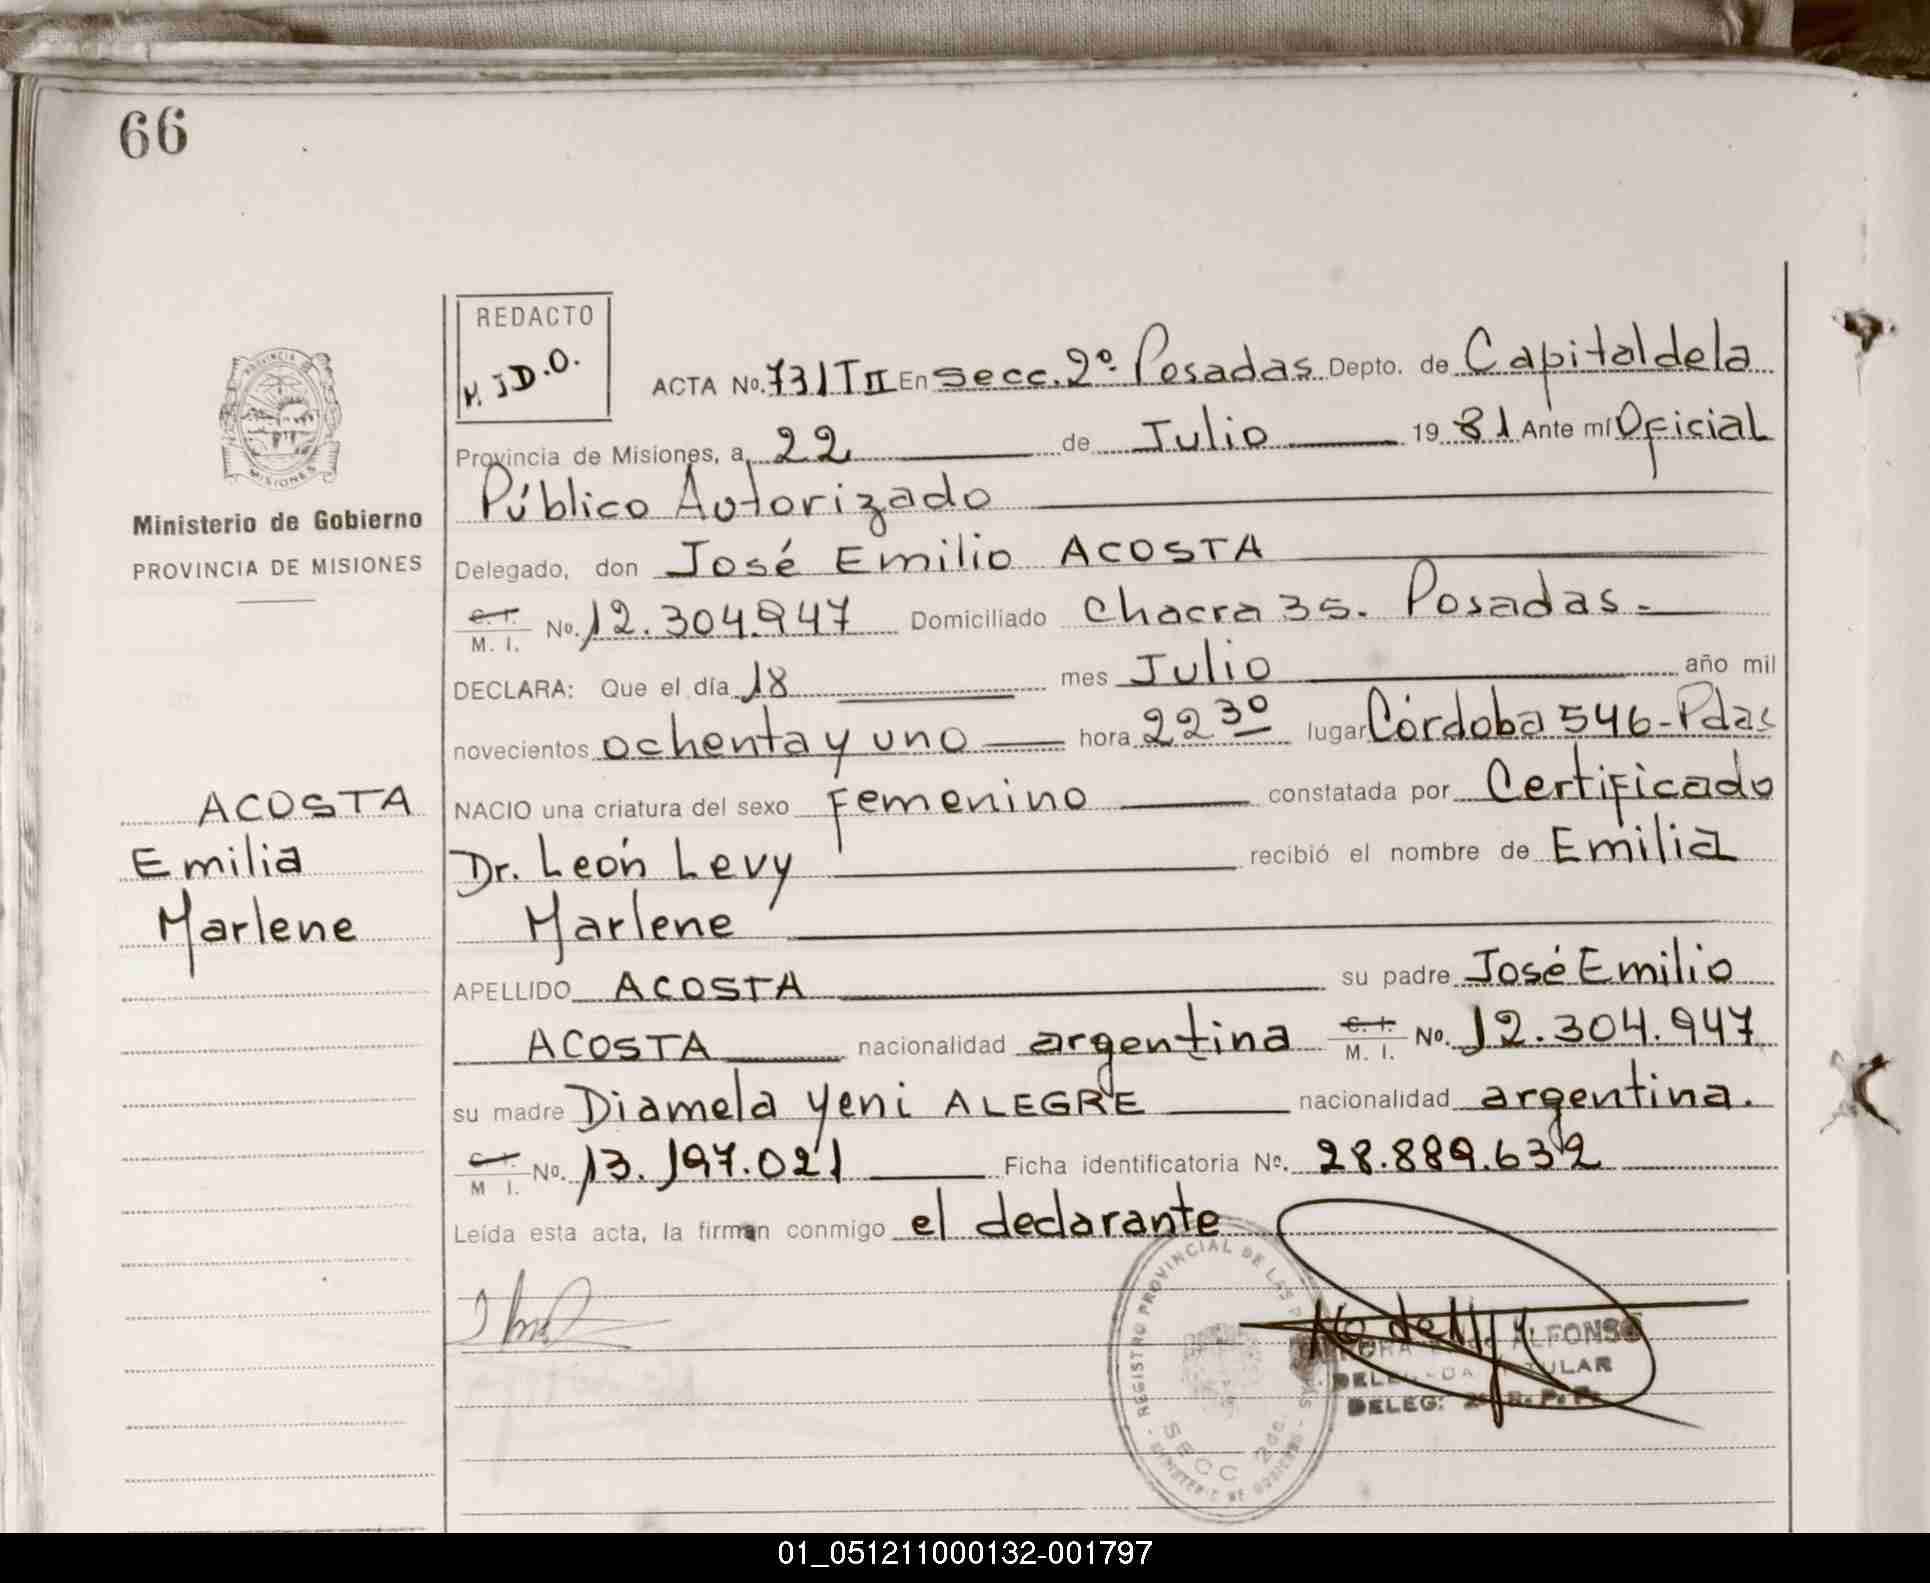 66
REDACTO
M. J D. O.
ACTA No. 731 T II En Secc. 2º Posadas Depto. de Capital de la
Provincia de Misiones, a 22 de Julio 19 81 Ante mí Oficial
Público Autorizado
Delegado, don José Emilio ACOSTA
C. I.
M. I. No. 12.304.947 Domiciliado Chacra 35. Posadas.-
DECLARA: Que el día 18 mes Julio año mil
novecientos ochenta y uno hora 22 30 lugar Córdoba 546-Pdas
NACIO una criatura del sexo Femenino constatada por Certificado
Dr. León Levy recibió el nombre de Emilia
Marlene
APELLIDO ACOSTA su padre José Emilio
ACOSTA nacionalidad argentina C. I.
M. I. No. 12.304.947
su madre Diamela Yeni ALEGRE nacionalidad argentina.
C. I.
M I. No. 13.197.021 Ficha identificatoria Nº. 28.889.632
Leída esta acta, la firman conmigo el declarante
PROVINCIA
MISIONES
Ministerio de Gobierno
PROVINCIA DE MISIONES
ACOSTA
Emilia
Marlene
REGISTRO PROVINCIAL DE LAS
SECC 2da.
ALFONSO
TITULAR
DELEG: 2
01_051211000132-001797